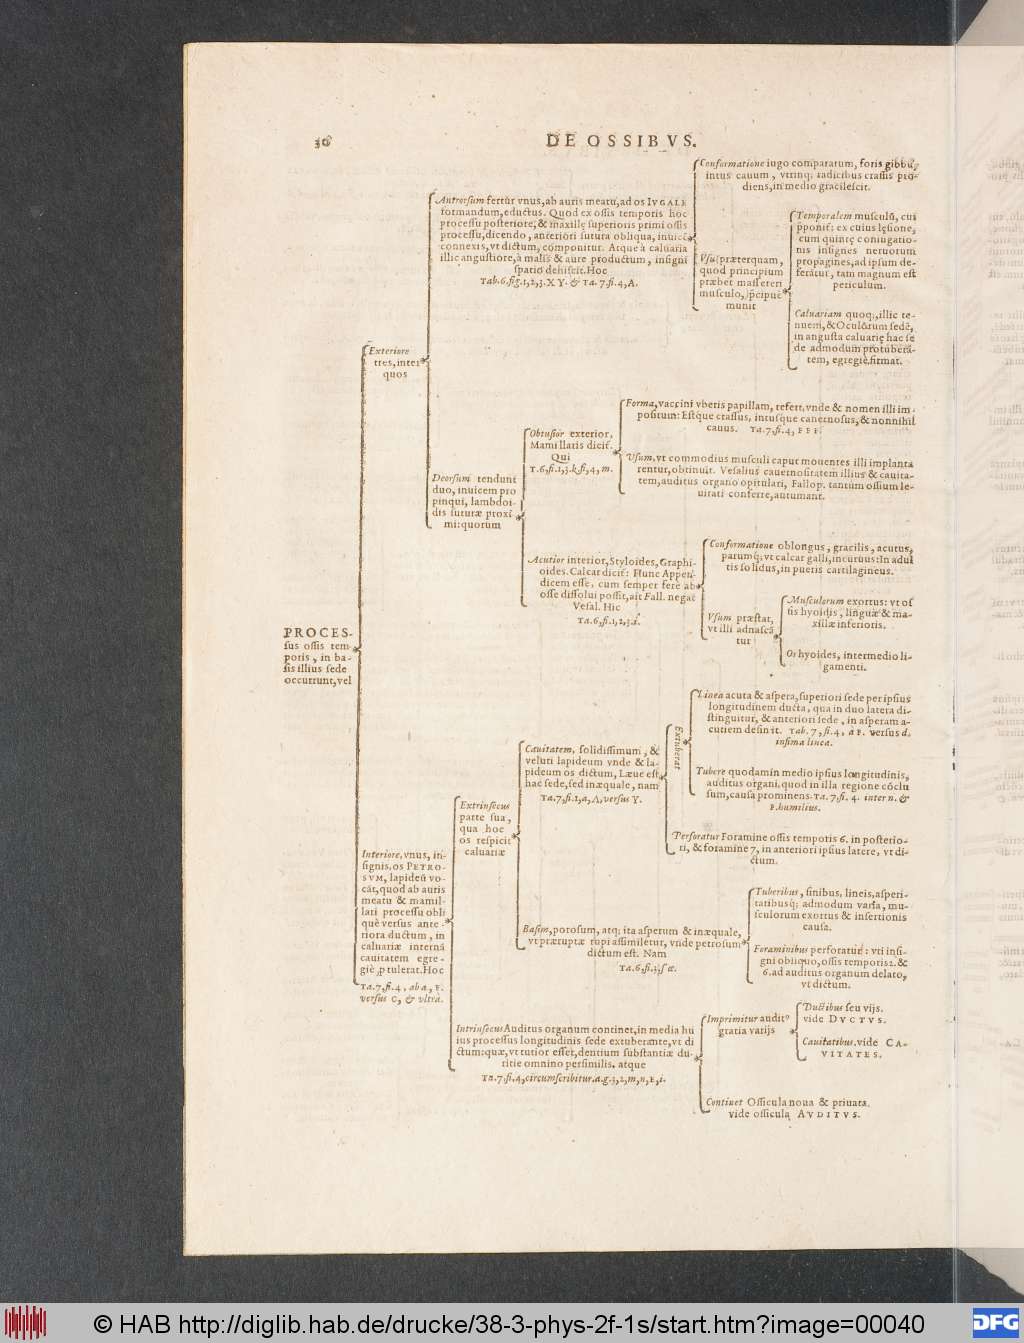 30
DE OSSIBVS.
PROCES-
sus ossis tem
poris, in ba-
sis illius sede
occurrunt, vel
Exteriore
tres, inter
quos
Antrorsum fertur vnus, ab auris meatu, ad os IVGALE
formandum, eductus. Quod ex ossis temporis hoc
processu posteriore, & maxillę superioris primi ossis
processu, dicendo, anteriori sutura obliqua, inuicē
connexis, vt dictum, componitur. Atque à caluaria
illic angustiore, à malis & aure productum, insigni
spatio dehiscit. Hoc
Tab. 6. fig. 1, 2, 3. X Y. & Ta. 7. fi. 4, A.
Conformatione iugo comparatum, foris gibbū,
intus cauum, vtrinq; radicibus crassis pro-
diens, in medio gracilescit.
Vsu: præterquam,
quod principium
præbet masseteri
musculo, p̄cipuè
munit
Temporalem musculū, cui
p̄ponit: ex cuius lęsione,
cum quintę coniugatio-
nis insignes neruorum
propagines, ad ipsum de-
ferātur, tam magnum est
periculum.
Caluariam quoq;, illic te-
nuem, & Oculorum sedē,
in angusta caluarię hac se
de admodum protuberā-
tem, egregiè firmat.
Deorsum tendunt
duo, inuicem pro
pinqui, lambdoi-
dis suturæ proxi-
mi: quorum
Obtusior exterior,
Mamillaris dicit.
Qui
T. 6, fi. 1, 3. k. fi, 4, m.
Forma, vaccini vberis papillam, refert, vnde & nomen illi im-
positum: Estque crassus, intusque cauernosus, & nonnihil
cauus. Ta. 7, fi. 4, F F F.
Vsum, vt commodius musculi caput mouentes illi implanta
rentur, obtinuit. Vesalius cauernositatem illius & cauita-
tem, auditus organo opitulari, Fallop. tantum ossium le-
uitati conferre, autumant.
Acutior interior, Styloides, Graphi-
oides. Calcar dicit: Hunc Appen-
dicem esse, cum semper ferè ab
osse dissolui possit, ait Fall. negat
Vesal. Hic
Ta. 6, fi. 1, 2, 3. s.
Conformatione oblongus, gracilis, acutus,
parumq; vt calcar galli, incuruus: In adul
tis solidus, in pueris cartilagineus.
Vsum præstat,
vt illi adnascā
tur
Musculorum exortus: vt os
sis hyoidis, linguæ & ma-
xillæ inferioris.
Os hyoides, intermedio li-
gamenti.
Interiore, vnus, in-
signis, os PETRO-
SVM, lapideū vo-
cāt, quod ab auris
meatu & mamil-
lari processu obli
què versus ante-
riora ductum, in
caluariæ internā
cauitatem egre-
giè p̄tulerat. Hoc
Ta. 7, fi. 4, ab a, F.
versus C, & vltra.
Extrinsecus
parte sua,
qua hoc
os respicit
caluariæ
Cauitatem, solidissimum, &
veluti lapideum vnde & la-
pideum os dictum, Læue est,
hac sede, sed inæquale, nam
Ta. 7, fi. 1, a, Λ, versus Y.
Extuberat
Linea acuta & aspera, superiori sede per ipsius
longitudinem ducta, qua in duo latera di-
stinguitur, & anteriori sede, in asperam a-
cutiem desinit. Tab. 7, fi. 4, a F. versus d.
infima linea.
Tubere quodam in medio ipsius longitudinis,
auditus organi, quod in illa regione cōclu
sum, causa prominens. Ta. 7, fi. 4. inter n. &
F. humilius.
Perforatur Foramine ossis temporis 6. in posterio-
ri, & foramine 7, in anteriori ipsius latere, vt di-
ctum.
Basim, porosum, atq; ita asperum & inæquale,
vt præruptæ rupi assimiletur, vnde petrosum
dictum est. Nam
Ta. 6, fi. 3, s
Tuberibus, sinibus, lineis, asperi-
tatibusq; admodum varia, mu-
sculorum exortus & insertionis
causa.
Foraminibus perforatur: vti insi-
gni obliquo, ossis temporis 2. &
6. ad auditus organum delato,
vt dictum.
Intrinsecus Auditus organum continet, in media hu
ius processus longitudinis sede extuberante, vt di
ctum: quæ, vt tutior esset, dentium substantiæ du-
ritie omnino persimilis. atque
Ta. 7. fi. 4, circumscribitur. a. g. 3, 2, m, n, F, i.
Imprimitur audit⁹
gratia varijs
Ductibus seu vijs.
vide DVCTVS.
Cauitatibus. vide CA-
VITATES.
Continet Ossicula noua & priuata.
vide ossicula AVDITVS.
© HAB http://diglib.hab.de/drucke/38-3-phys-2f-1s/start.htm?image=00040
DFG